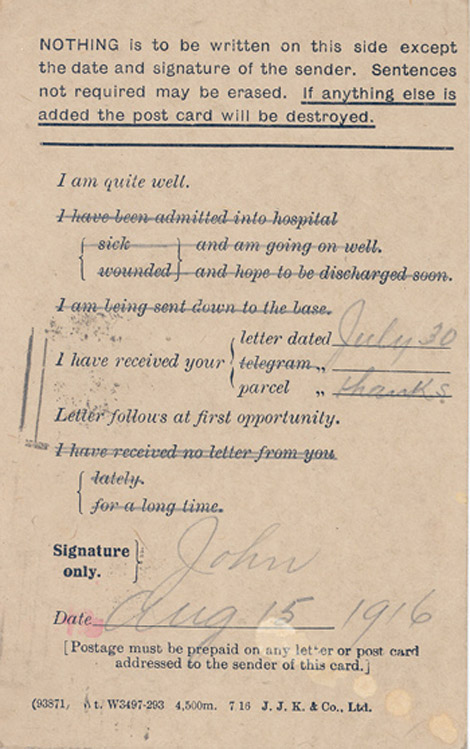 NOTHING is to be written on this side except
the date and signature of the sender. Sentences
not required may be erased. If anything else is
added the post card will be destroyed.
I am quite well.
I have been admitted into hospital
sick and am going on well.
wounded and hope to be discharged soon.
I am being sent down to the base.
letter dated July 30
I have received your telegram „
parcel „ thanks
Letter follows at first opportunity.
I have received no letter from you
lately.
for a long time.
Signature
only.
John
Date Aug 15 1916
[Postage must be prepaid on any letter or post card
addressed to the sender of this card.]
(93871) t. W3497-293 4,500m. 7 16 J. J. K. & Co., Ltd.